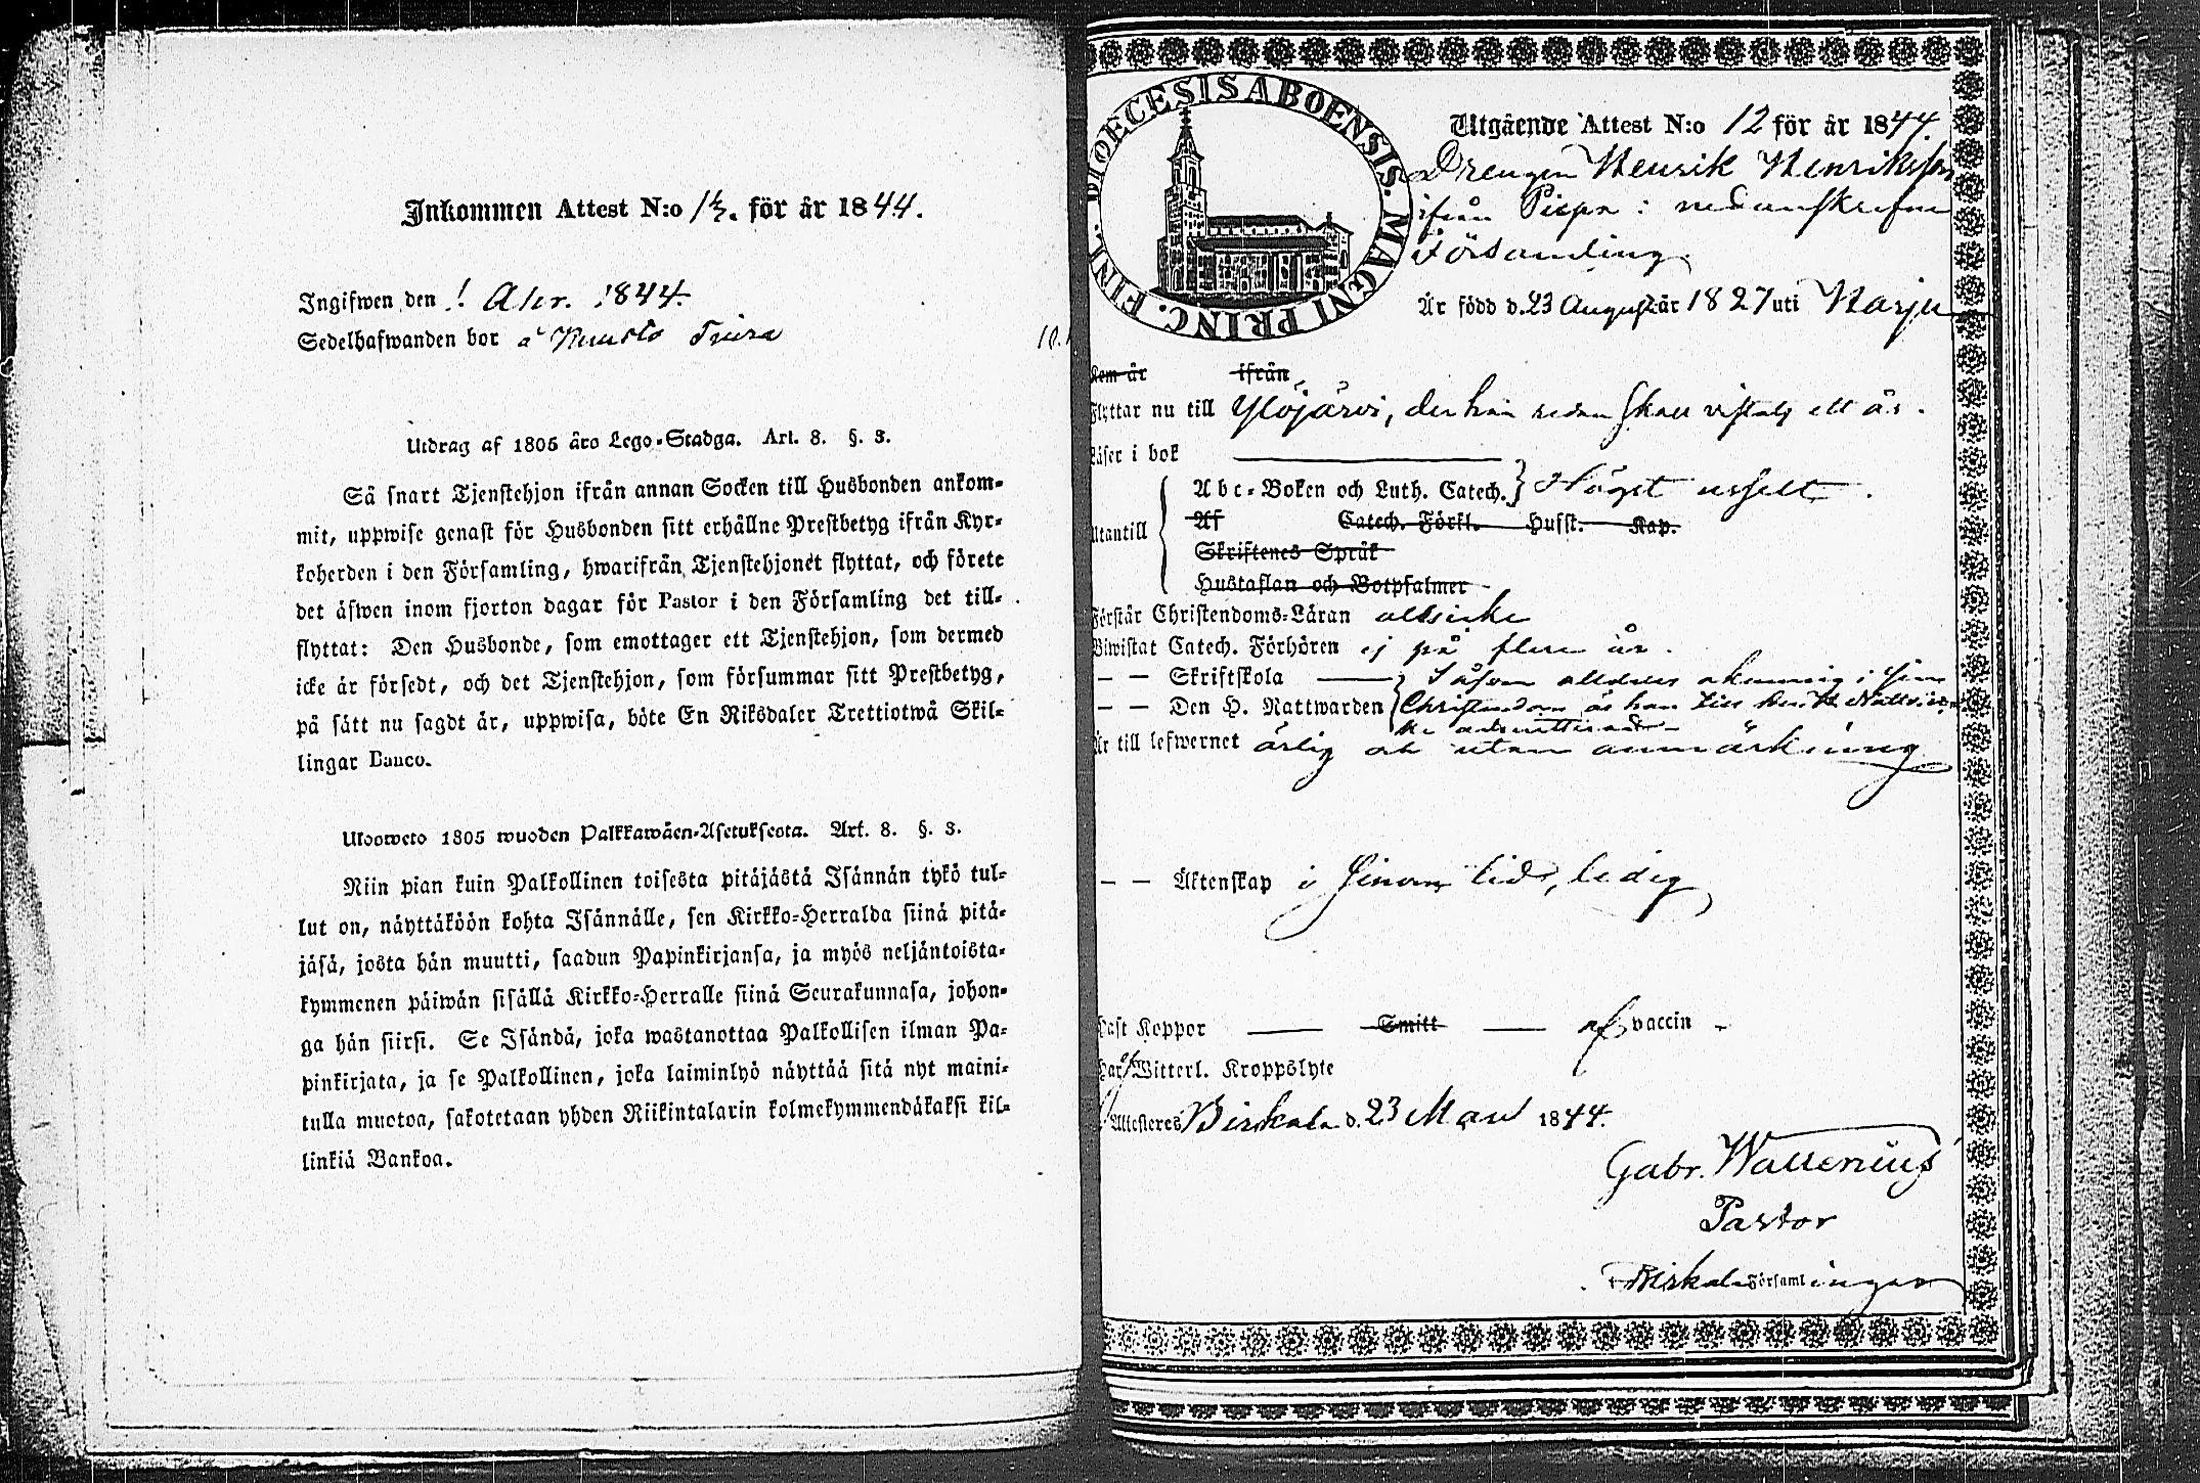 Inkommen Attest N:o för år 1844.
Ingifwen den 1 Apr. 1844.
Sedelhafwanden bor å
Utdrag af 1805 åro Lego-Stadga. Art. 8. §. 3.
Så snart Tjenstehjon ifrån annan Socken till Husbonden ankom-
mit, uppwise genast för Husbonden sitt erhållne Prestbetyg ifrån Kyr-
koherden i den Församling, hwarifrån Tjenstehjonet flyttat, och förete
det äfwen inom fjorton dagar för Pastor i den Församling det till-
flyttat: Den Husbonde, som emottager ett Tjenstehjon, som dermed
icke är försedt, och det Tjenstehjon, som försummar sitt Prestbetyg,
på sätt nu sagdt är, uppwisa, böte En Riksdaler Trettiotwå Skil-
lingar Banco.
Ulosweto 1805 wuoden Palkkawäen-Asetuksesta. Art. 8. §. 3.
Niin pian kuin Palkollinen toisesta pitäjästä Isännän tykö tul-
lut on, näyttäköön kohta Isännälle, sen Kirkko-Herralda siinä pitä-
jäsä, josta hän muutti, saadun Papinkirjansa, ja myös neljäntoista-
kymmenen päiwän sisällä Kirkko-Herralle siinä Seurakunnasa, johon-
ga hän siirsi. Se Isändä, joka wastanottaa Palkollisen ilman Pa-
pinkirjata, ja se Palkollinen, joka laiminlyö näyttää sitä nyt maini-
tulla muotoa, sakotetaan yhden Riikintalarin kolmekymmendäkaksi kil-
linkiä Bankoa.
DIOECESIS ABOENSIS. MAGNI PRINC. FINL.
Utgående Attest N:o 12 för år 1844.
Drengen Henrik Henriksson
ifrån Pispa i nedanskrefne
Församling
Är född d. 23 August år 1827 uti Harju
Kom år ifrån
Flyttar nu till Ylöjärvi, der han redan skall vistats ett år.
Läser i bok
Abc-Boken och Luth. Catech. } Högst uselt.
Utantill
Af Catech. Förkl. Husst. Kap.
Skriftenes Språk
Hustaflan och Botpsalmer
Förstår Christendoms-Läran alls icke
Biwistat Catech. Förhören ej på flere år.
— — Skriftskola — Såsom alldeles okunnig i sin
— — Den H. Nattwarden Christendom är han till den H. Nattvard
icke admitterad
Är till lefwernet ärlig och utan anmärkning
— — Äktenskap i sinom tid, ledig
Haft Koppor — Smitt — af vaccin
Har ej Witterl. Kroppslyte
Attesteres Birkala d. 23 Mars 1844.
Gabr. Wallenius
Pastor
Birkala Församlingar